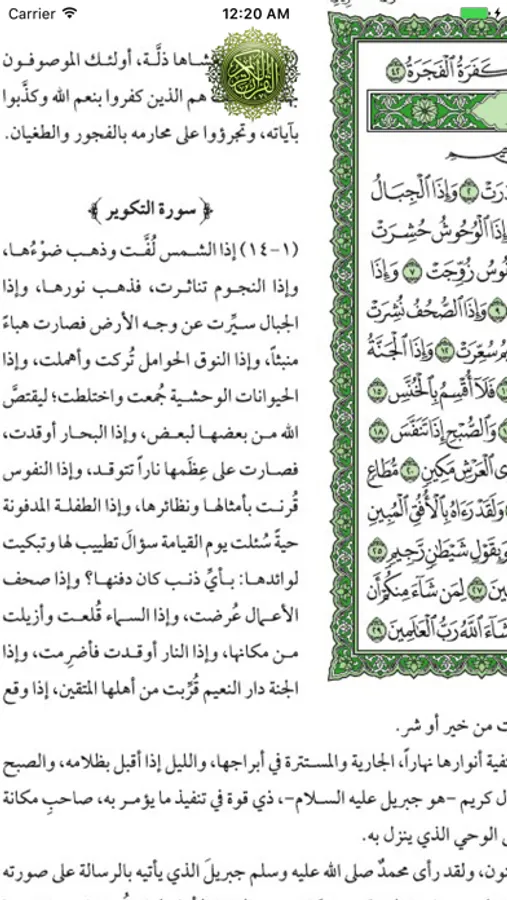 Carrier 12:20 AM
كَفَرَةُ ٱلْفَجَرَةُ ٤٢
وَإِذَا ٱلْجِبَالُ
وَإِذَا ٱلْوُحُوشُ حُشِرَتْ
زُوِّجَتْ ٧ وَإِذَا
٩ وَإِذَا ٱلصُّحُفُ نُشِرَتْ
سُعِّرَتْ ١٢ وَإِذَا ٱلْجَنَّةُ
فَلَآ أُقْسِمُ بِٱلْخُنَّسِ ١٥
وَٱلصُّبْحِ إِذَا تَنَفَّسَ ١٨
ٱلْعَرْشِ مَكِينٍ ٢٠ مُّطَاعٍ
وَلَقَدْ رَءَاهُ بِٱلْأُفُقِ ٱلْمُبِينِ
بِقَوْلِ شَيْطَٰنٍ رَّجِيمٍ ٢٥
٢٧ لِمَن شَآءَ مِنكُمْ أَن
ٱللَّهُ رَبُّ ٱلْعَٰلَمِينَ ٢٩
ذلَّة، أولئك الموصوفون
هم الذين كفروا بنعم الله وكذَّبوا
بآياته، وتجرؤوا على محارمه بالفجور والطغيان.
﴿سورة التكوير﴾
(١-١٤) إذا الشمس لُفَّت وذهب ضوْءُها،
وإذا النجوم تناثرت، فذهب نورها، وإذا
الجبال سيِّرت عن وجه الأرض فصارت هباءً
منبثاً، وإذا النوق الحوامل تُركت وأهملت، وإذا
الحيوانات الوحشية جُمعت واختلطت؛ ليقتصَّ
الله من بعضها لبعض، وإذا البحار أوقدت،
فصارت على عِظَمها ناراً تتوقد، وإذا النفوس
قُرنت بأمثالها ونظائرها، وإذا الطفلة المدفونة
حيةً سُئلت يوم القيامة سؤالَ تطييب لها وتبكيت
لوائدها: بأيِّ ذنب كان دفنها؟ وإذا صحف
الأعمال عُرضت، وإذا السماء قُلعت وأزيلت
من مكانها، وإذا النار أوقدت فأضرمت، وإذا
الجنة دار النعيم قُرِّبت من أهلها المتقين، إذا وقع
من خير أو شر.
أنوارها نهاراً، الجارية والمستترة في أبراجها، والليل إذا أقبل بظلامه، والصبح
كريم -هو جبريل عليه السلام-، ذي قوة في تنفيذ ما يؤمر به، صاحبِ مكانة
الوحي الذي ينزل به.
ولقد رأى محمدٌ صلى الله عليه وسلم جبريلَ الذي يأتيه بالرسالة على صورته